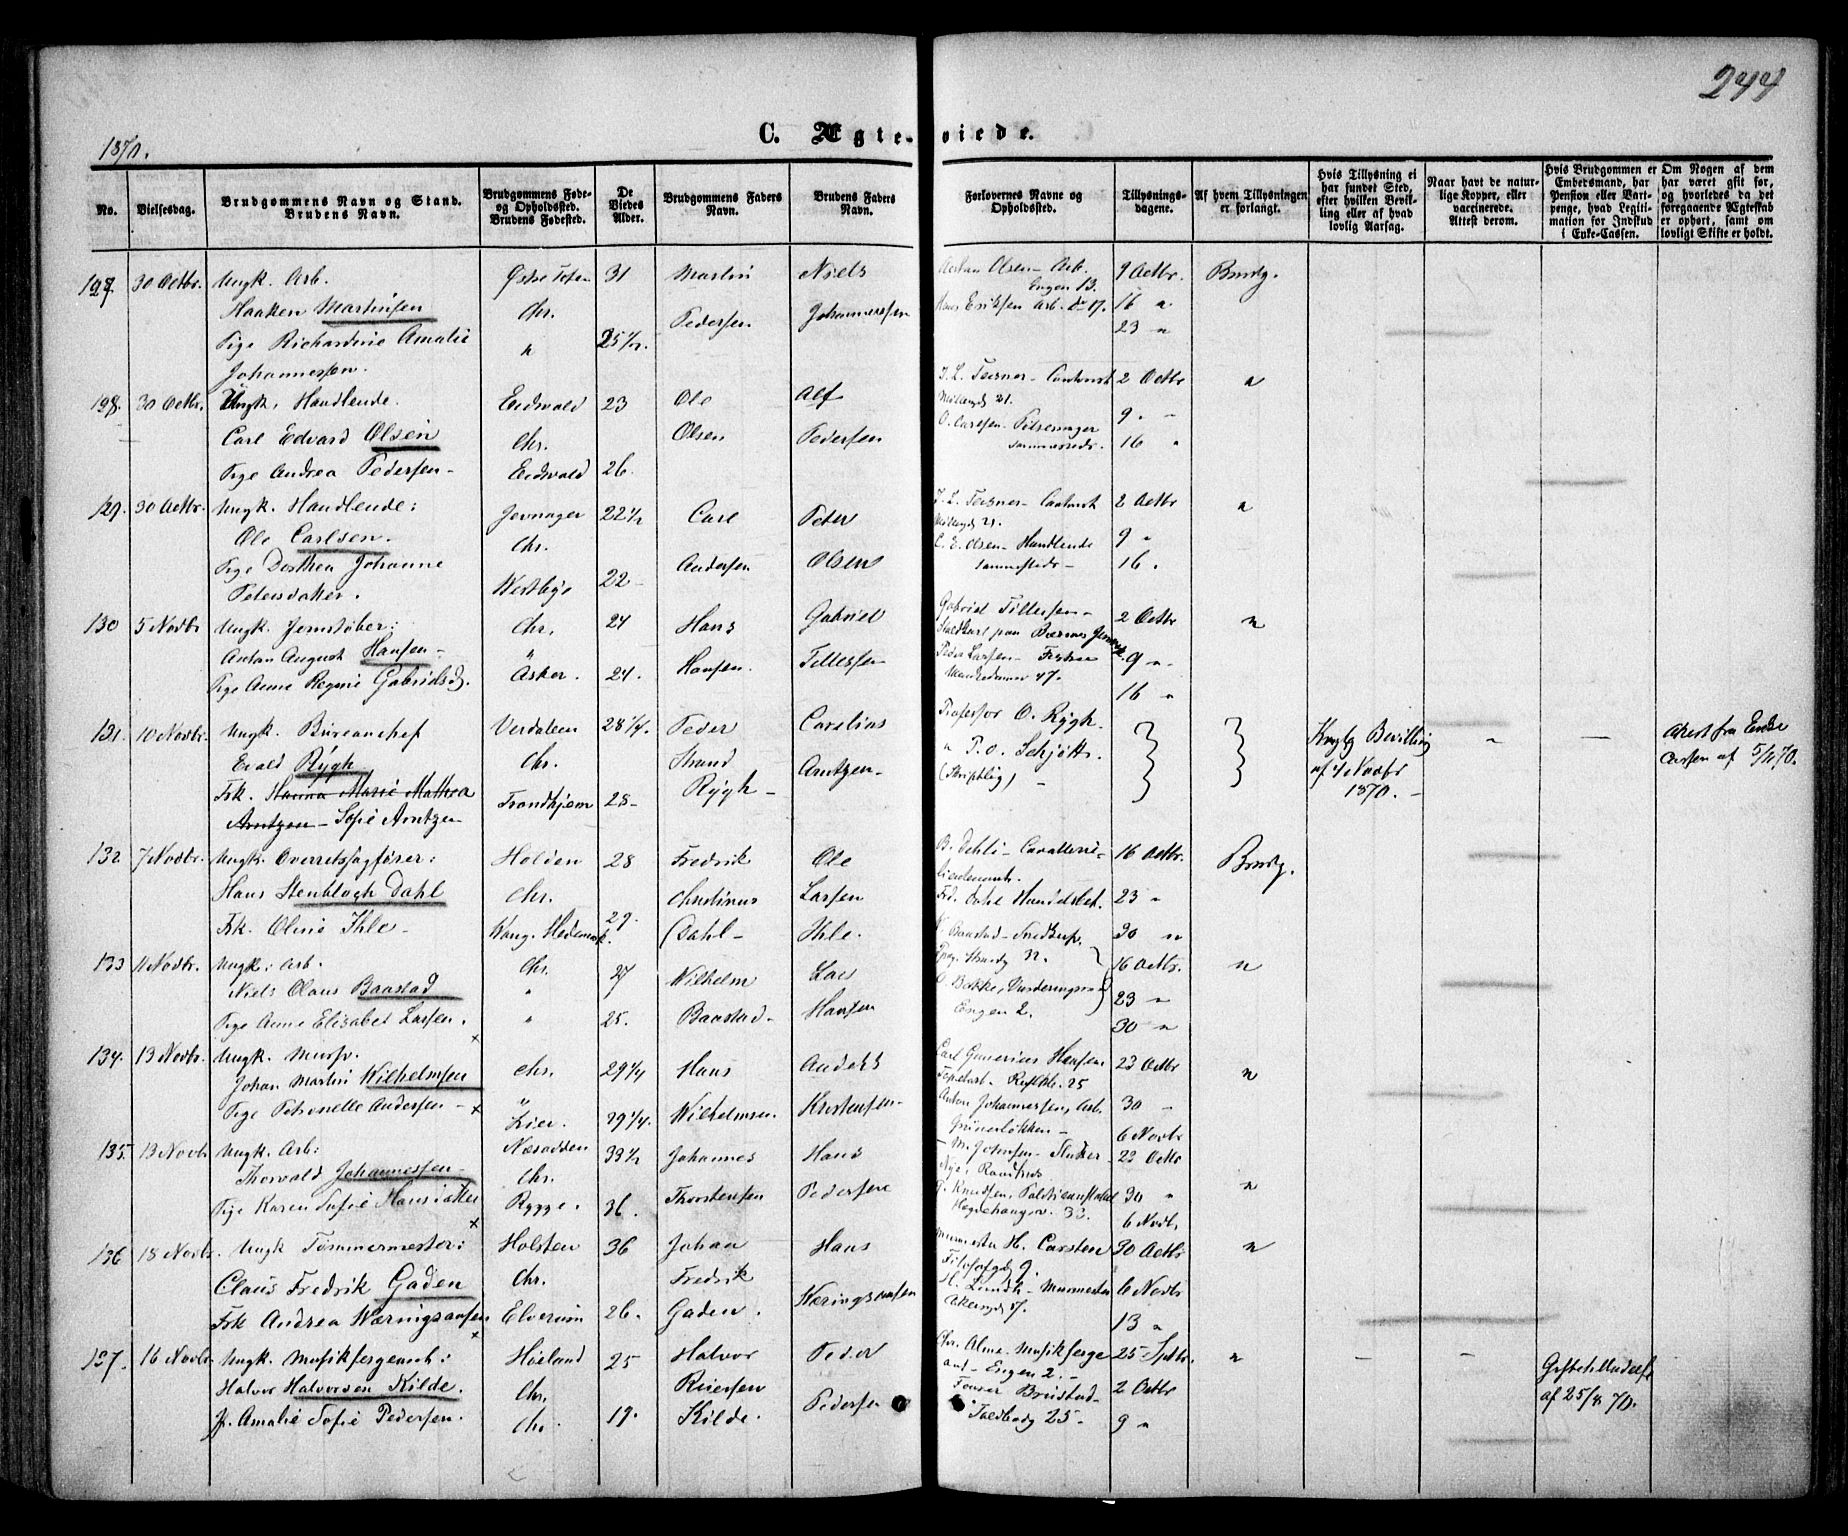 244
1870.
C. Ægte-viede.
No.
Vielsesdag.
Brudgommens Navn og Stand.
Brudens Navn.
Brudgommens Føde-
og Opholdssted.
Brudens Fødested.
De
Viedes
Alder.
Brudgommens Faders
Navn.
Brudens Faders
Navn.
Forlovernes Navne og
Opholdssted.
Tillysnings-
dagene.
Af hvem Tillysningen
er forlangt.
Hvis Tillysning ei
har fundet Sted,
efter hvilken Bevil-
ling eller af hvad
lovlig Aarsag.
Naar havt de natur-
lige Kopper, eller
vaccinerede.
Attest derom.
Hvis Brudgommen er
Embedsmand, har
Pension eller Vart-
penge, hvad Legiti-
mation for Indskud
i Enke-Cassen.
Om Nogen af dem
har været gift før,
og hvorledes da det
foregaaende Ægteskab
er ophørt, samt om
lovligt Skifte er holdt.
127. 30 Octbr. Ungk. Arb. Østre Toten 31 Martin Niels Olsen - Arb. 9 Octbr. Brudg.
Engen 13.
Haaken Martinsen Chr. Pedersen Johannessen Hans Eriksen Arb. do 17. 16 "
Pige Richardine Amalie " 25 1/2. 23 "
Johannessen.
128. 30 Octbr. Ungk. Handlende. Eidsvold 23 Ole Alf J. L. Teisner - 2 Octbr "
Møllergd 21.
Carl Edvard Olsen Chr. Olsen Pedersen O. Carlsen 9. "
sammesteds. 16 "
Pige Andrea Pedersen - Eidsvold 26.
129. 30 Octbr. Ungk. Handlende: Jevnager 22 1/2 Carl Peter J. L. Teisner - 2 Octbr "
Møllergd 21.
Ole Carlsen. Chr. C. E. Olsen - Handlende 9 "
Pige Dorthea Johanne Westbye 22 - Andersen Olsen sammesteds - 16.
Petersdatter.
130 5 Novbr Ungk. Jernstøber: Chr. 24 Hans Gabriel Gabriel Tillersen - 2 Octbr "
Anton August Hansen - " Hansen. Tillersen Peder Larsen - 9 "
Pige Anne Regine Gabrielsd. Asker. 24. 47. 16 "
131. 10 Novbr. Ungk. Bureauchef Verdalen 28 1/4. Peder Carelius Professor O. Rygh. Kngl. Bevilling - - Attest fra Enke
Evald Rygh Chr. Strand Arntzen - " P. O. Schjøtt. af 4 Novbr Cassen af 5/11 70.
Frk. Hanna Marie Mathea Trondhjem 28 - Rygh - (Skriftlig) - 1870. -
Arntzen - Sofie Arntzen
132 7 Novbr. Ungk. Overretssagfører: Holden 28 Fredrik Ole B. Dehli - Cavalleri- 16 Octbr. Brudg.
lieutenant.
Hans Stenbloch Dahl Chr. Christinus Larsen Frd. Dahl Handelsbet. 23 "
Frk. Oline Ihle - Vang. Hedemark. 29. Dahl - Ihle. 30 "
133 11 Novbr. Ungk: Arb. Chr. 27 Wilhelm Lars Baastad - Snedkersv. 16 Octbr. "
32.
Niels Olaus Baastad " O. Bakke, 23 "
Pige Anne Elisabet Larsen. " 25. Baastad - Hansen Engen 2. 30 "
134. 13 Novbr. Ungk. Mursv. Chr. 29 1/4 Hans Anders Carl Gunerius Hansen 23 Octbr "
Johan Martin Wilhelmsen " 25
Pige Petronelle Andersen - Lier. 29 1/4. Wilhelmsen. Kristensen - Anton Johannessen, Arb. 30 -
Grünerløkken - 6 Novbr
135. 13 Novbr Ungk. Arb: Næsodden 33 1/2 Johannes Hans M. Johnsen - 22 Octbr
Thorvald Johannessen - Chr. "
Pige Karen Sofie Hansdatter Rygge. 36. Thorstensen Pedersen Knudsen, 30 "
Hegdehaugsv. 33. 6 Novbr.
136 18 Novbr. Ungk Tømmermester: Holsten 36 Johan Hans Murmester H. Carsten 30 Octbr "
9.
Claus Fredrik Gaden Chr. Fredrik H. Lundh - Murmester 6 Novbr
Akersgd 17.
Frk Andrea Næringsaasen Elverum 26. Gaden. Næringsaasen 13 "
137. 16 Novbr. Ungk. Musiksergeant: Høland 25 Halvor Peder Chr. Alme - Musikserge 25 Sptbr. " - -
ant - Engen 2. -
Halvor Halvorsen Kilde. Chr. Reiersen Brustad - 2 Octbr af 25/8 70.
P. Amalie Sofie Pedersen. Chr. 19. Kilde. Pedersen 25 - 9 "